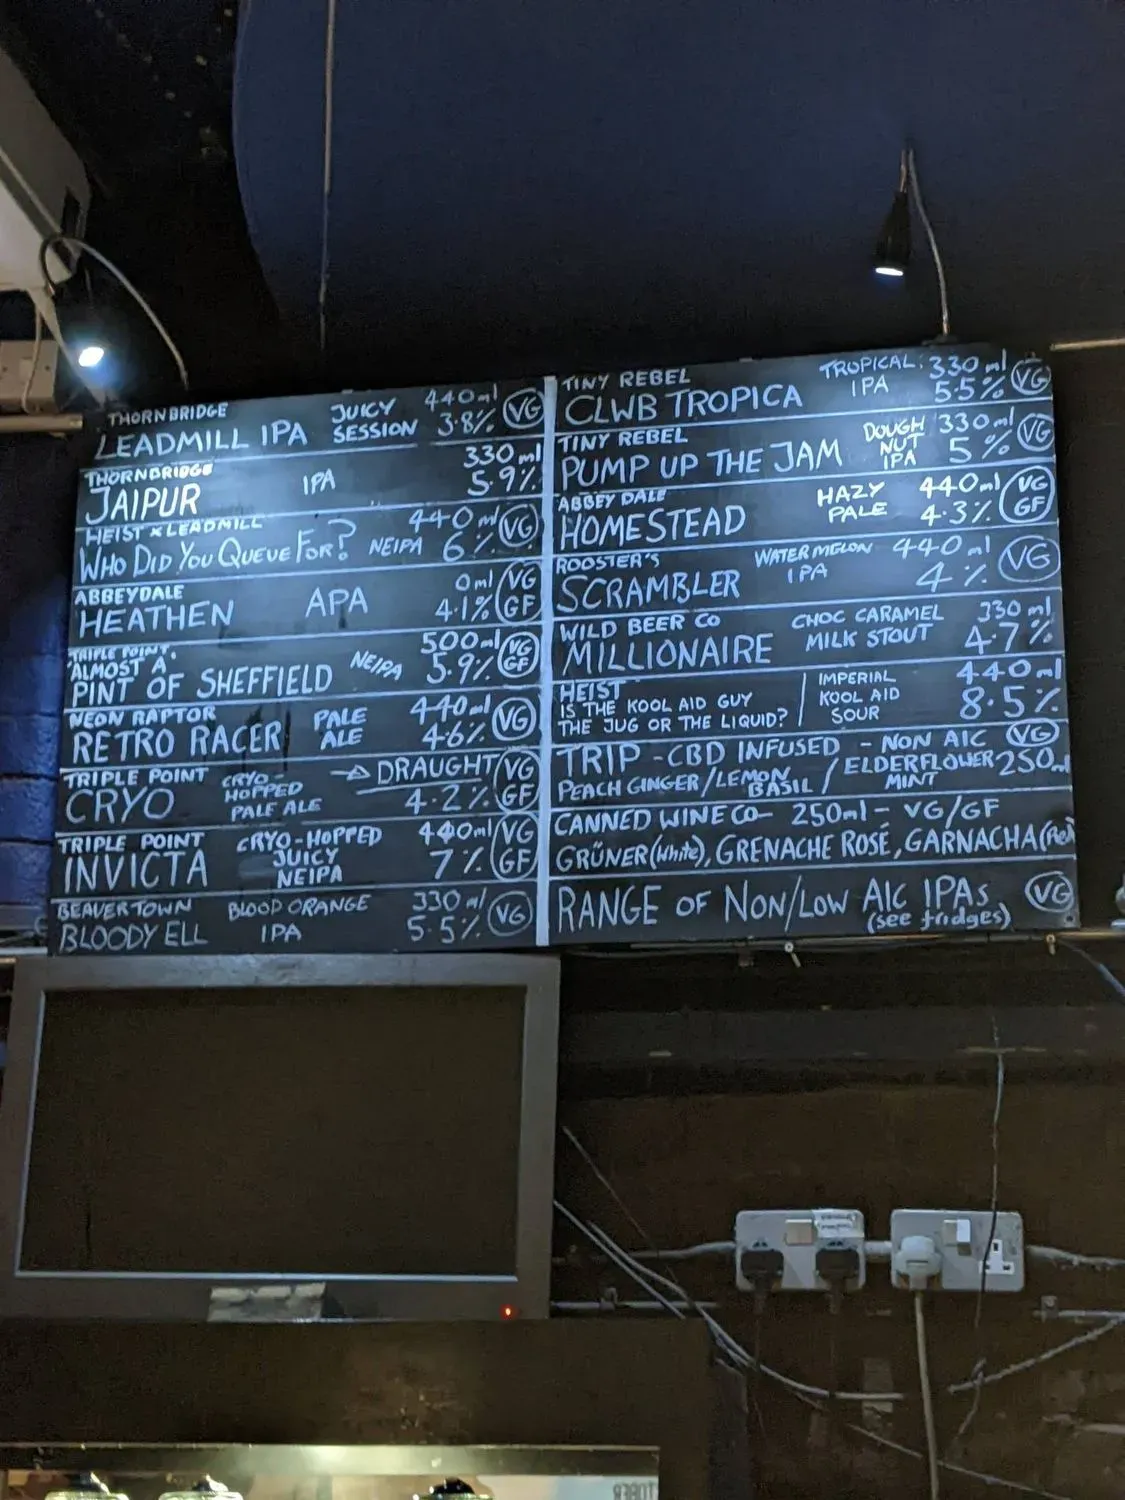 THORNBRIDGE JUICY 440ml VG
LEADMILL IPA SESSION 3.8%
THORNBRIDGE 330ml
JAIPUR IPA 5.9%
HEIST x LEADMILL 440ml VG
WHO DID YOU QUEUE FOR? NEIPA 6%
ABBEYDALE 0ml VG
HEATHEN APA 4.1% GF
TRIPLE POINT. 500ml VG
ALMOST A NEIPA 5.9% GF
PINT OF SHEFFIELD
NEON RAPTOR PALE 440ml VG
RETRO RACER ALE 4.6%
TRIPLE POINT CRYO- → DRAUGHT VG
CRYO HOPPED 4.2% GF
PALE ALE
TRIPLE POINT CRYO-HOPPED 440ml VG
INVICTA JUICY 7% GF
NEIPA
BEAVERTOWN BLOOD ORANGE 330ml VG
BLOODY ELL IPA 5.5%
TINY REBEL TROPICAL: 330ml VG
CLWB TROPICA IPA 5.5%
TINY REBEL DOUGH 330ml VG
PUMP UP THE JAM NUT 5%
IPA
ABBEYDALE HAZY 440ml VG
HOMESTEAD PALE 4.3% GF
ROOSTER'S WATERMELON 440ml VG
SCRAMBLER IPA 4%
WILD BEER CO CHOC CARAMEL 330ml
MILLIONAIRE MILK STOUT 4.7%
HEIST IMPERIAL 440ml
IS THE KOOL AID GUY KOOL AID 8.5%
THE JUG OR THE LIQUID? SOUR
TRIP - CBD INFUSED - NON Alc VG
PEACH GINGER / LEMON BASIL / ELDERFLOWER MINT 250ml
CANNED WINE CO - 250ml - VG/GF
GRÜNER (White), GRENACHE ROSÉ, GARNACHA (Red)
RANGE OF NON/LOW Alc IPAs VG
(see fridges)